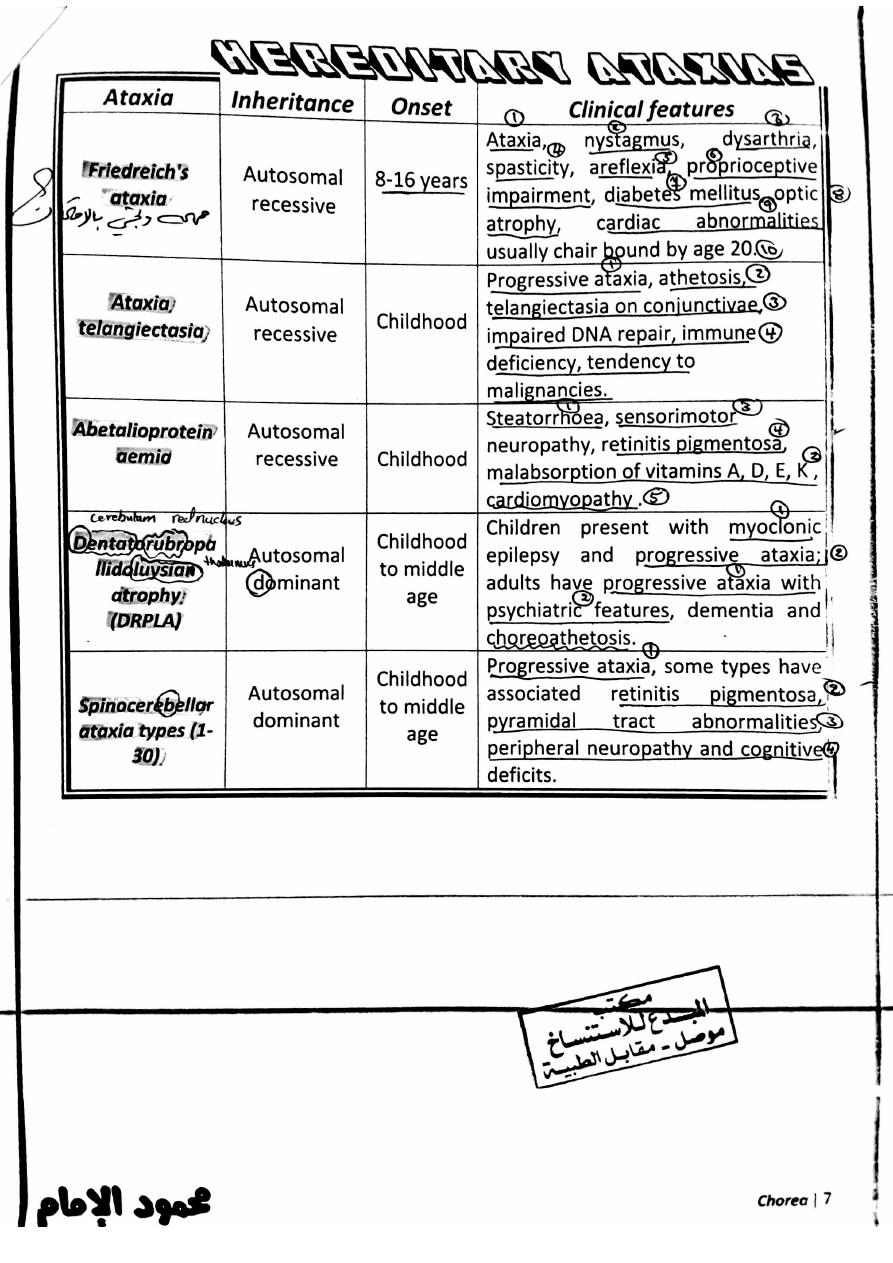 HEREDITARY ATAXIAS
Ataxia Inheritance Onset Clinical features
Friedreich's
ataxia
Autosomal
recessive
8-16 years
① ② ③
Ataxia, ④ nystagmus, dysarthria,
spasticity, areflexia, ⑤ proprioceptive ⑥
impairment, diabetes ⑦ mellitus, optic ⑧
atrophy, cardiac abnormalities ⑨
usually chair bound by age 20. ⑩
Ataxia
telangiectasia
Autosomal
recessive
Childhood
Progressive ataxia, ① athetosis, ②
telangiectasia on conjunctivae, ③
impaired DNA repair, immune ④
deficiency, tendency to
malignancies.
Abetalioprotein
aemia
Autosomal
recessive
Childhood
Steatorrhoea, ① sensorimotor ③
neuropathy, retinitis pigmentosa, ④
malabsorption of vitamins A, D, E, K , ②
cardiomyopathy . ⑤
cerebulam red nucleus
Dentatorubropa
llidoluysian
thalamus
atrophy
(DRPLA)
Autosomal
dominant
Childhood
to middle
age
Children present with myoclonic ①
epilepsy and progressive ataxia; ②
adults have progressive ataxia with ①
psychiatric features, ② dementia and
choreoathetosis.
Spinocerebellar
ataxia types (1-
30)
Autosomal
dominant
Childhood
to middle
age
Progressive ataxia, ① some types have
associated retinitis pigmentosa, ②
pyramidal tract abnormalities, ③
peripheral neuropathy and cognitive ④
deficits.
مكتب
المبدع للاستنساخ
موصل - مقابل الطبية
محمود الإمام
Chorea | 7